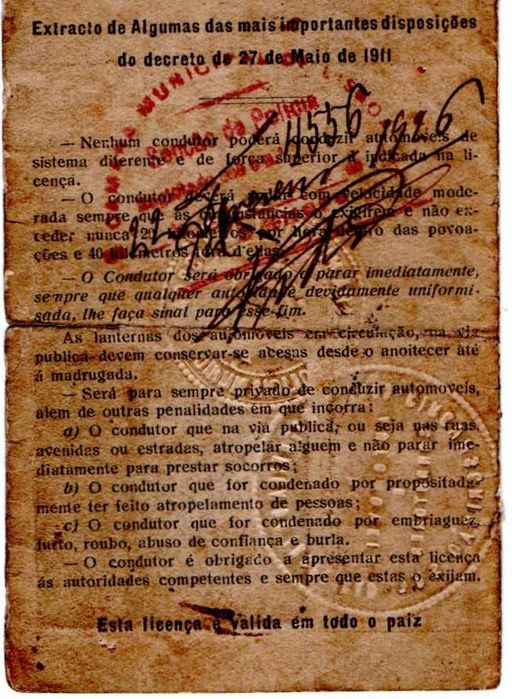 Extracto de Algumas das mais importantes disposições
do decreto de 27 de Maio de 1911
— Nenhum condutor poderá conduzir automoveis de
sistema diferente e de força superior á indicada na li-
cença.
— O condutor deverá com velocidade mode-
rada sempre que as circunstancias o exigirem e não ex-
ceder nunca 20 kilometros por hora dentro das povoa-
ções e 40 kilometros fóra d'elas.
— O Condutor será obrigado a parar imediatamente,
sempre que qualquer autoridade devidamente uniformi-
sada, lhe faça sinal para esse fim.
As lanternas dos automoveis em circulação, na via
publica devem conservar-se acesas desde o anoitecer até
á madrugada.
— Será para sempre privado de conduzir automoveis,
alem de outras penalidades em que incorra:
a) O condutor que na via publica, ou seja nas ruas,
avenidas ou estradas, atropelar alguem e não parar ime-
diatamente para prestar socorros;
b) O condutor que for condenado por propositada-
mente ter feito atropelamento de pessoas;
c) O condutor que for condenado por embriaguez,
furto, roubo, abuso de confiança e burla.
— O condutor é obrigado a apresentar esta licença
ás autoridades competentes e sempre que estas o exijam.
Esta licença é valida em todo o paiz
MUNICIPAL DE LISBO
Secção de Policia
11556
1926